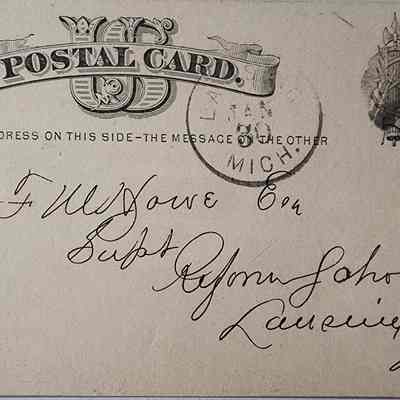 US
POSTAL CARD.
DRESS ON THIS SIDE-THE MESSAGE ON THE OTHER
LA
JAN
30
MICH.
F M Howe Esq
Supt
Reform Scho
Lansing